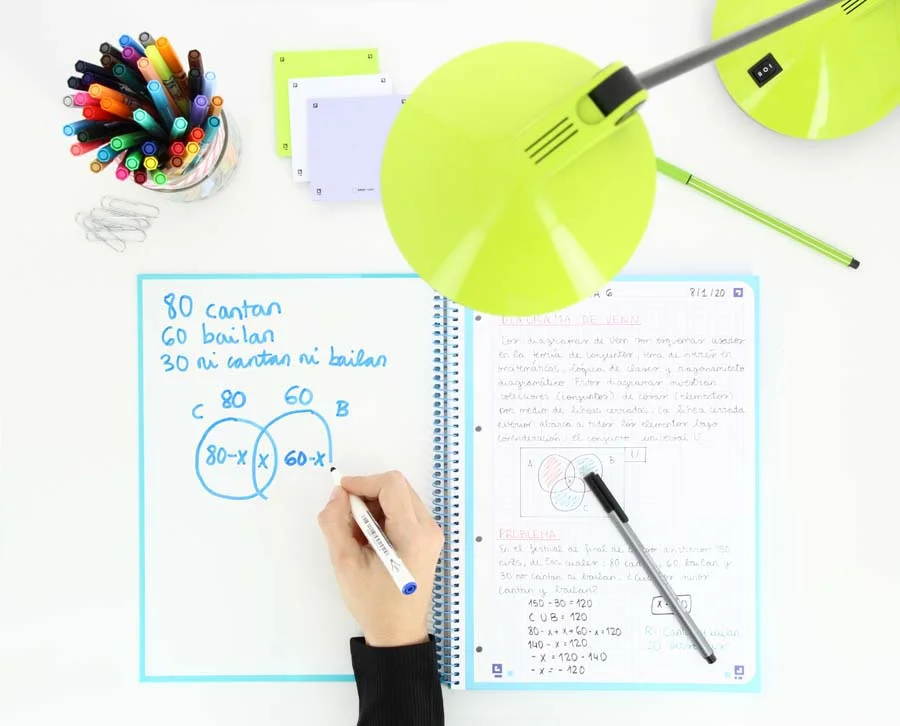 80 cantan
60 bailan
30 ni cantan ni bailan
80 60
C B
80-x x 60-x
6 8/1/20
DIAGRAMA DE VENN
Los diagramas de Venn son esquemas usados
en la teoría de conjuntos, tema de interés en
matemáticas, lógica de clases y razonamiento
diagramático. Estos diagramas muestran
colecciones (conjuntos) de cosas (elementos)
por medio de líneas cerradas. La línea cerrada
exterior abarca a todos los elementos bajo
consideración, el conjunto universal U.
U
A B
C
PROBLEMA
En el festival de final de
niños, de los cuales: 80 60 bailan y
30 no cantan ni bailan. niños
cantan y bailan?
150-30=120
C U B = 120
80-x+x+60-x=120
140-x=120
-x=120-140
-x=-120